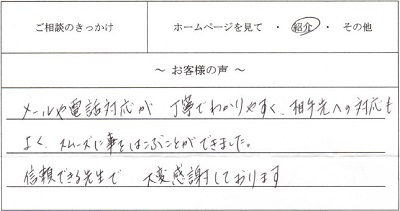 ご相談のきっかけ ホームページを見て ・ 紹介 ・ その他
～ お客様の声 ～
メールや電話対応が 丁寧でわかりやすく、相手先への対応も
よく、スムーズに事をはこぶことができました。
信頼できる先生で 大変感謝しております